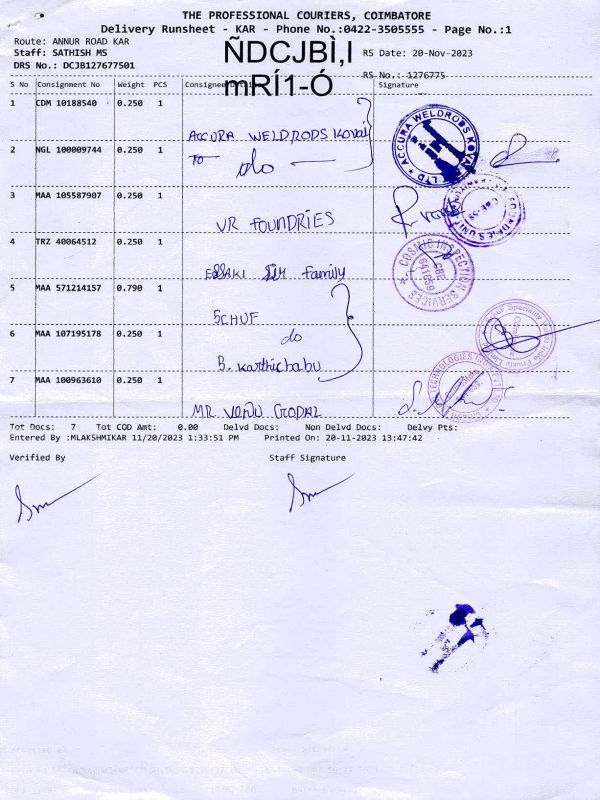 THE PROFESSIONAL COURIERS, COIMBATORE
Delivery Runsheet - KAR - Phone No.:0422-3505555 - Page No.:1
Route: ANNUR ROAD KAR
Staff: SATHISH MS
DRS No.: DCJB127677501
ÑDCJBÌ,I
mRÍ1-Ó
RS Date: 20-Nov-2023
RS No.: 1276775
S No Consignment No Weight PCS Consignee Details Signature
1 CDM 10188540 0.250 1
ACCURA WELDRODS KOVAI
2 NGL 100009744 0.250 1
TO do
3 MAA 105587907 0.250 1
VR FOUNDRIES
4 TRZ 40064512 0.250 1
family
5 MAA 571214157 0.790 1
SCHUF
6 MAA 107195178 0.250 1
do
B. Karthicbabu
7 MAA 100963610 0.250 1
MR VENU GOPAL
ACCURA WELDRODS KOVAI LTD
COSMIC INSPECTION SERVICES
CBE
641659
Tot Docs: 7 Tot COD Amt: 0.00 Delvd Docs: Non Delvd Docs: Delvy Pts:
Entered By :MLAKSHMIKAR 11/20/2023 1:33:51 PM Printed On: 20-11-2023 13:47:42
Verified By Staff Signature